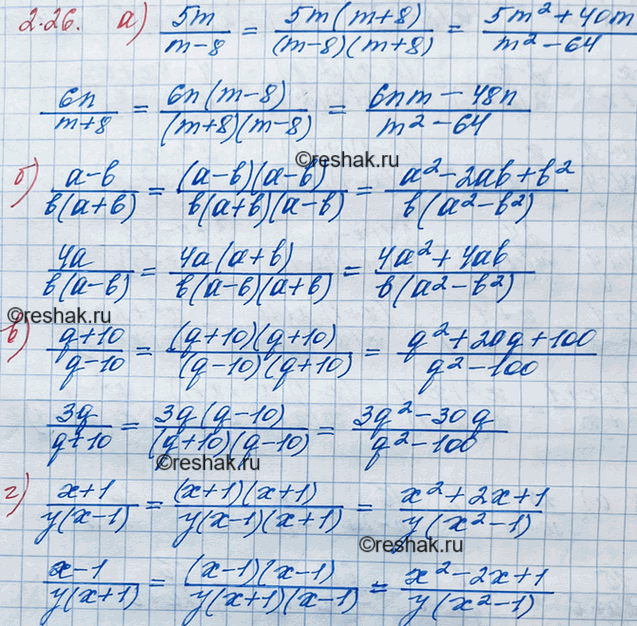 2.26. а) 5m/(m-8) = 5m(m+8)/((m-8)(m+8)) = (5m²+40m)/(m²-64)
6n/(m+8) = 6n(m-8)/((m+8)(m-8)) = (6nm-48n)/(m²-64)
©reshak.ru
б) (a-b)/(b(a+b)) = (a-b)(a-b)/(b(a+b)(a-b)) = (a²-2ab+b²)/(b(a²-b²))
4a/(b(a-b)) = 4a(a+b)/(b(a-b)(a+b)) = (4a²+4ab)/(b(a²-b²))
©reshak.ru
в) (q+10)/(q-10) = (q+10)(q+10)/((q-10)(q+10)) = (q²+20q+100)/(q²-100)
3q/(q+10) = 3q(q-10)/((q+10)(q-10)) = (3q²-30q)/(q²-100)
©reshak.ru
г) (x+1)/(y(x-1)) = (x+1)(x+1)/(y(x-1)(x+1)) = (x²+2x+1)/(y(x²-1))
©reshak.ru
(x-1)/(y(x+1)) = (x-1)(x-1)/(y(x+1)(x-1)) = (x²-2x+1)/(y(x²-1))